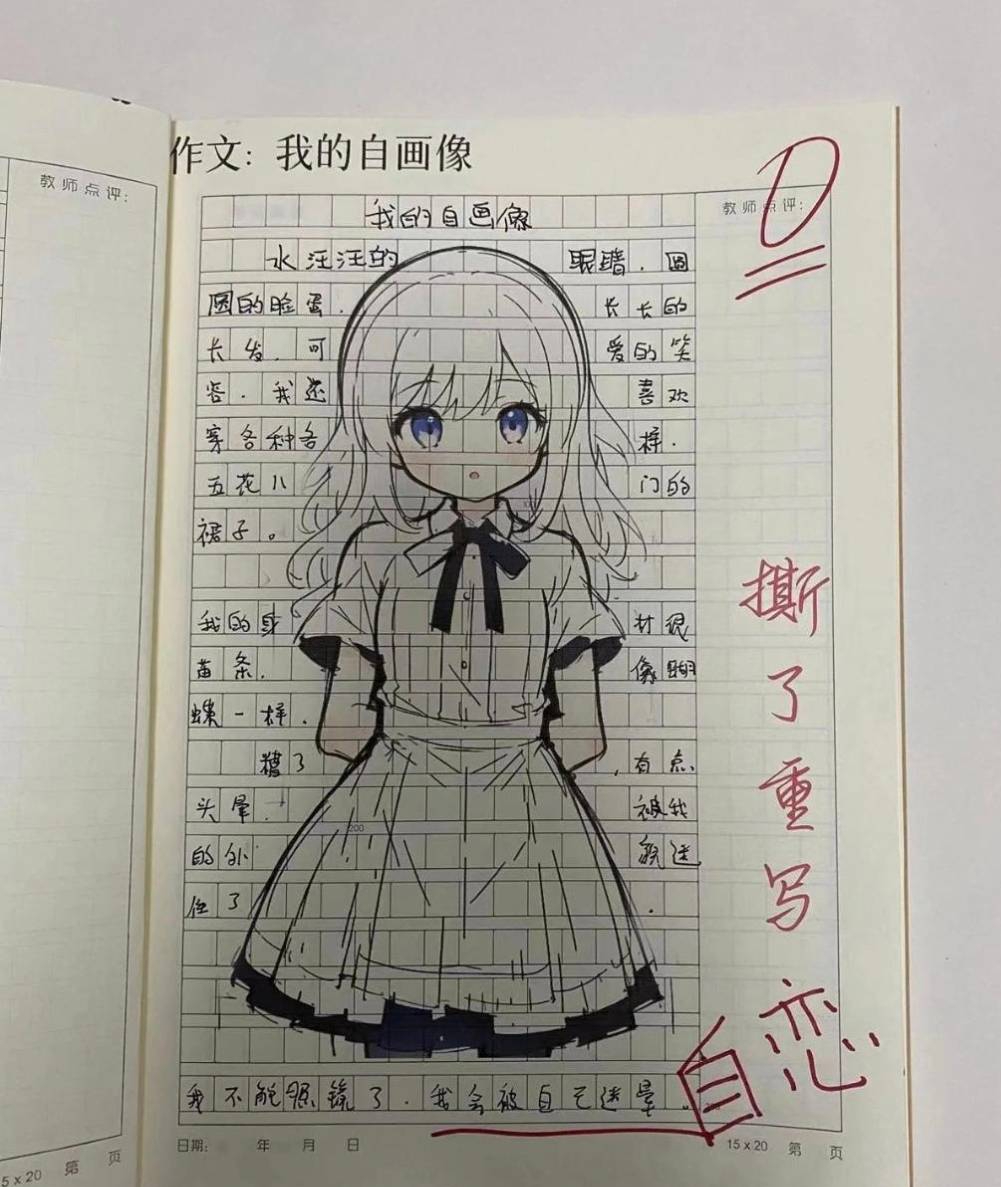 教师点评:
作文: 我的自画像
教师点评:
D
我的自画像
水汪汪的眼睛.圆
圆的脸蛋.长长的
长发.可爱的笑
容.我还喜欢
穿各种各样.
五花八门的
裙子。
我的身材很
苗条.像蝴
蝶一样.
糟了.有点
头晕.被我
的外貌迷
住了.
我不能照镜了.我会被自己迷晕.
撕了重写
自恋
100
200
日期: 年 月 日
15×20 第 页
5×20 第 页